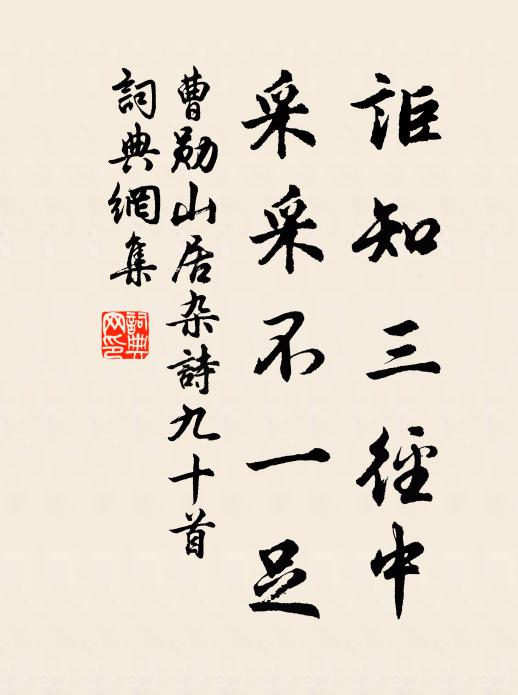 詎知三徑中
采采不一足
曹勛山居杂詩九十首
詞典網集
詞典網印